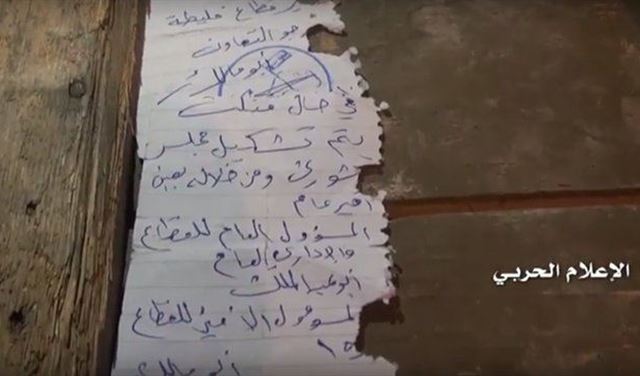 قطاع فليطة
جو التعاون
ابو مالك
في حال قتلت
يتم تشكيل مجلس
شورى ومن خلاله يعين
امير عام
المسؤول العام للقطاع
والاداري العام
ابو عبد الملك
المسؤول الامني للقطاع
الإعلام الحربي